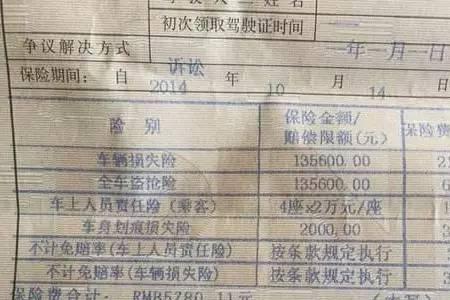 姓名
初次领取驾驶证时间
争议解决方式
诉讼
年 月 日
保险期间: 自 2014 年 10 月 14 日
险别 保险金额/赔偿限额(元) 保险费
车辆损失险 135600.00 2
全车盗抢险 135600.00 6
车上人员责任险(乘客) 4座×2万元/座 1
车身划痕损失险 2000.00 3
不计免赔率(车上人员责任险) 按条款规定执行
不计免赔率(车辆损失险) 按条款规定执行 3
保险费合计: RMB5780.11元